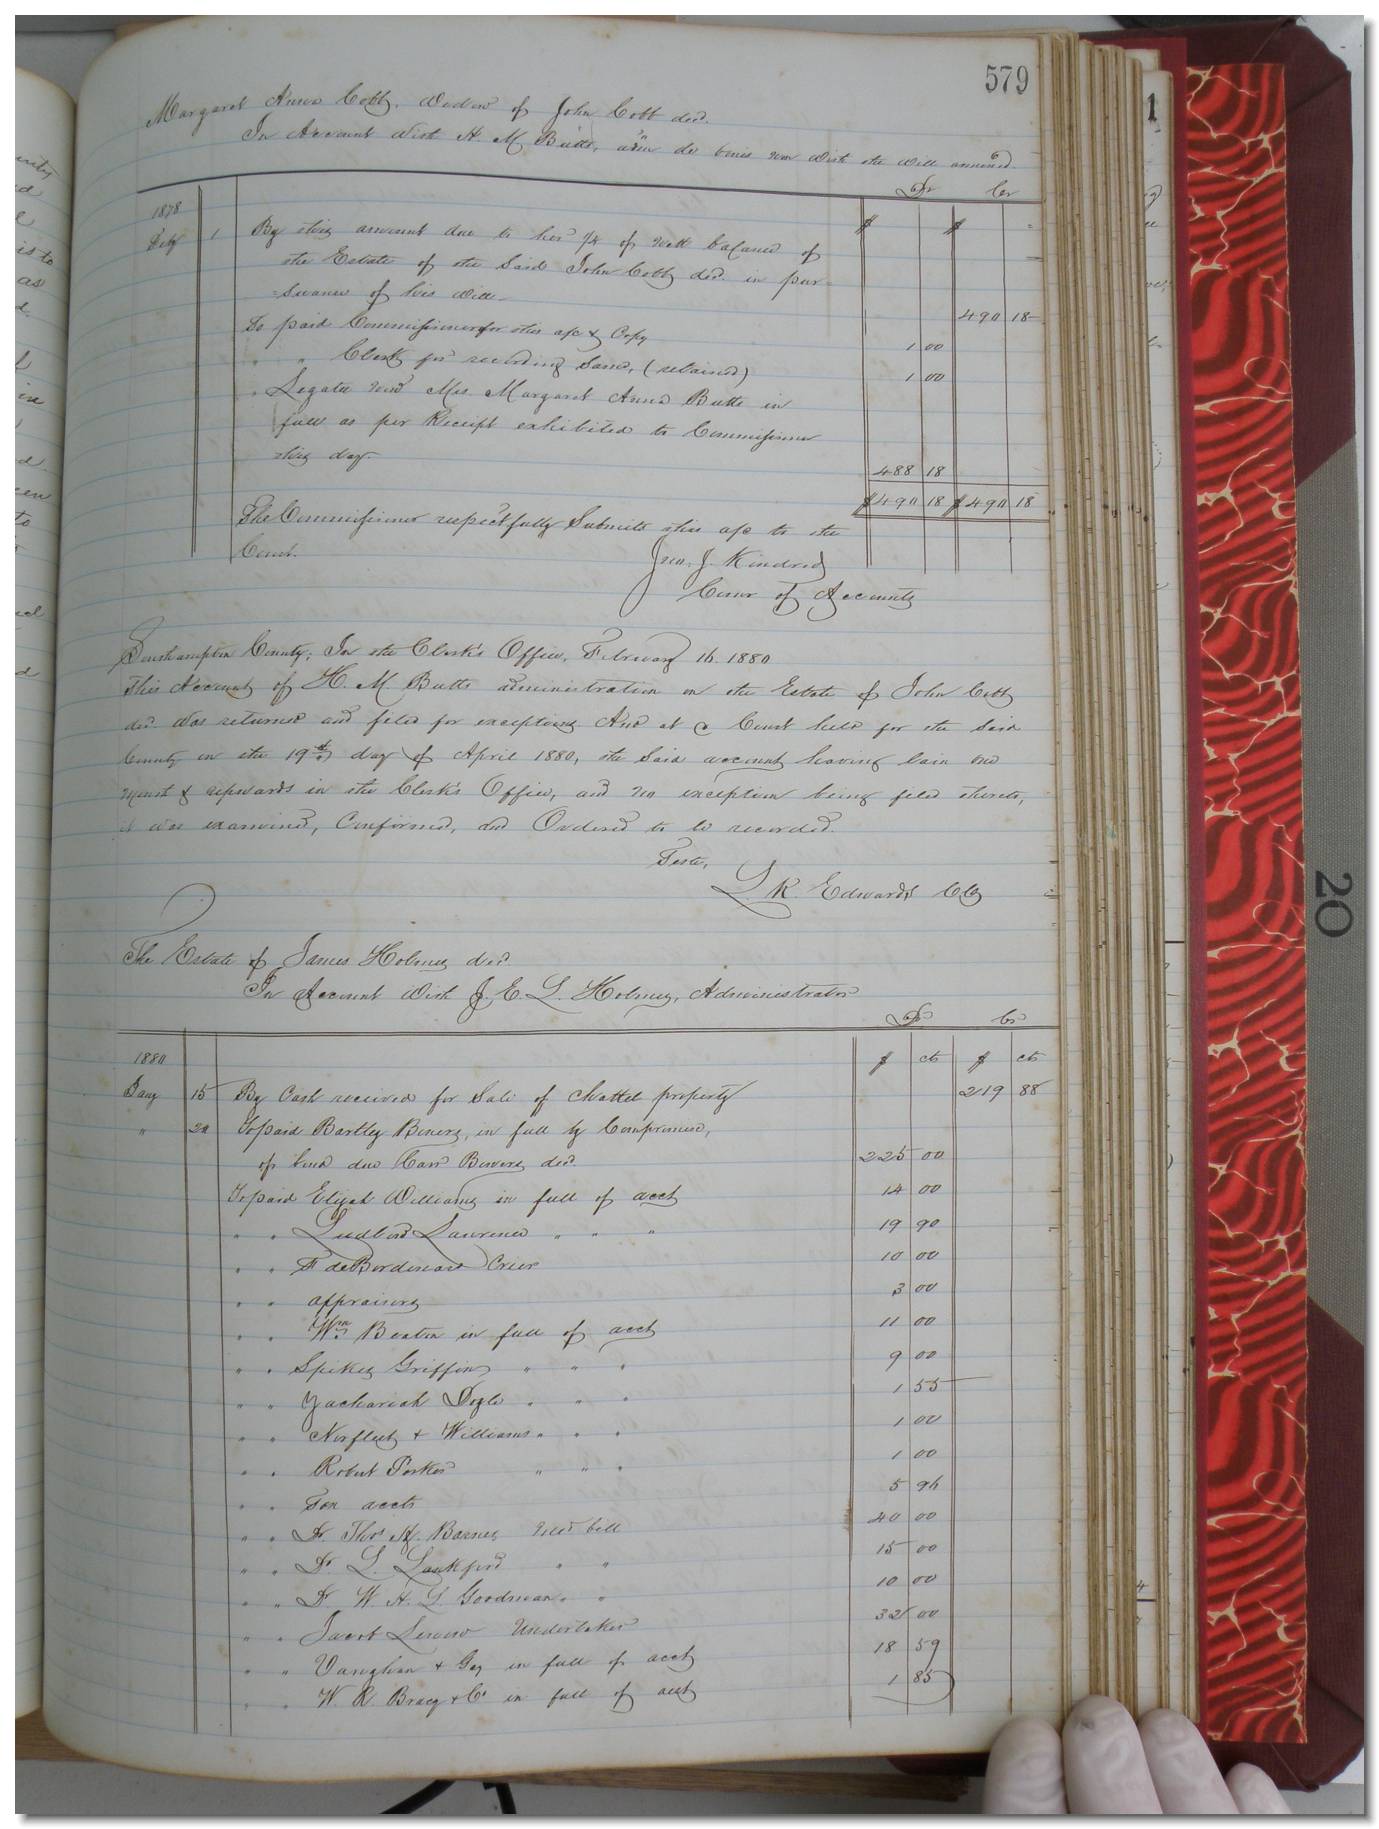 579
Margaret Anna Cobb, Widow of John Cobb decd.
In Account with H. M. Butts, admr de bonis non with the will annexed.
Dr Cr
1878
Feby 1 By this amount due to her 1/4 of nett balance of $ $
the Estate of the said John Cobb decd. in pur=
=suance of his will 490 18
To paid Commissioner for this a/c & Copy 1 00
" " Clerk for recording same, (retained) 1 00
" Legatee Mrs. Margaret Anna Butts in
full as per Receipt exhibited to Commissioner
this day. 488 18
$490 18 $490 18
The Commissioner respectfully submits this a/c to the
Court.
Jno. J. Kindred
Comr of Accounts
Southampton County; In the Clerk's Office, February 16. 1880
This Account of H. M. Butts administration on the Estate of John Cobb
decd. was returned and filed for exceptions And at a Court held for the said
County on the 19th day of April 1880, the said account having lain one
month & upwards in the Clerk's Office, and no exception being filed thereto,
it was examined, Confirmed, and Ordered to be recorded.
Teste,
L. R. Edwards Clk
The Estate of James Holmes decd.
In Account with J. E. L. Holmes, Administrator
Dr Cr
1880 $ cts $ cts
Jany 15 By Cash received for Sale of Chattel property 219 88
" 20 To paid Bartley Bowers, in full by Compromise,
of bond due Carr Bowers decd. 225 00
To paid Elijah Williams in full of acct 14 00
" " Ludford Lawrence " " " 19 90
" " F deBordenave Crier 10 00
" " appraisers 3 00
" " Wm. Beaton in full of acct 11 00
" " Spikes Griffin " " " 9 00
" " Zachariah Doyle " " " 1 55
" " Norfleet & Williams " " " 1 00
" " Robert Porter " " " 1 00
" " For accts 5 96
" " Dr. Thos H. Barnes Med bill 40 00
" " Dr. L. Lankford " " 15 00
" " Dr W. H. L Goodman " " 10 00
" " Jacob Undertaker 32 00
" " Vaughan & Gay in full of acct 18 59
" " W R Bracy & Co in full of acct 1 85
1
20